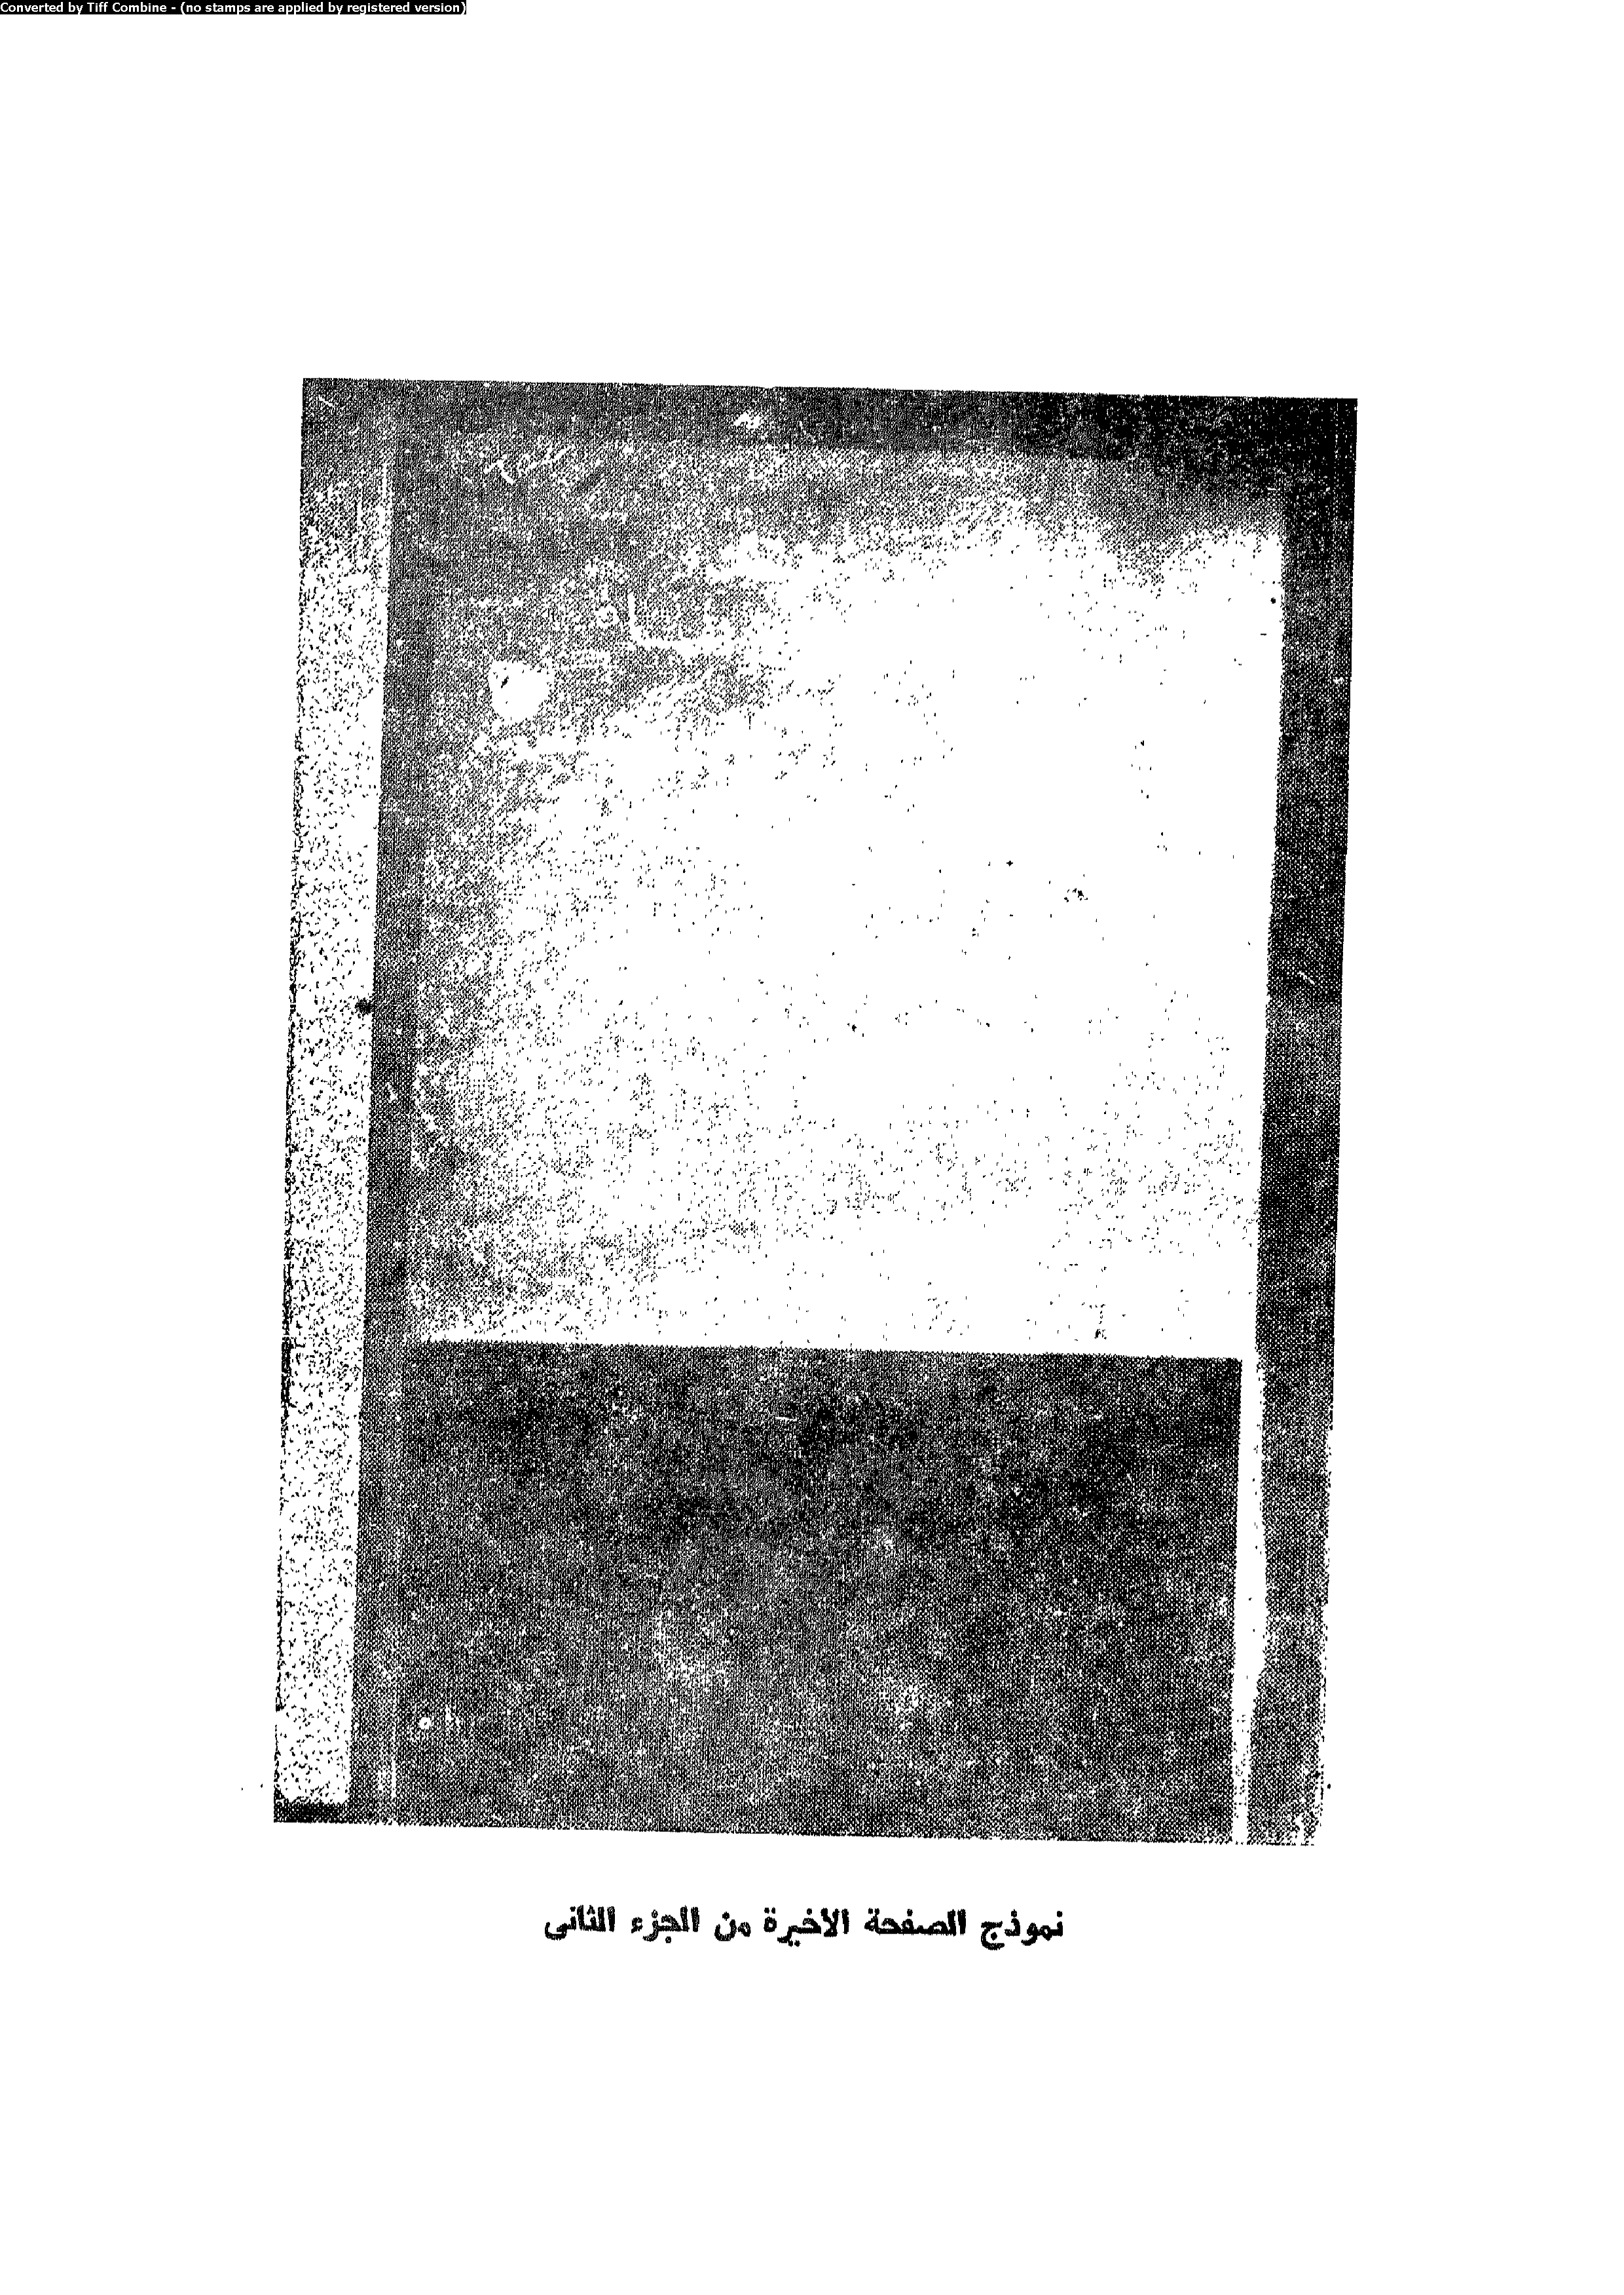 Converted by Tiff Combine - (no stamps are applied by registered version)
نموذج الصفحة الاخيرة من الجزء الثانى